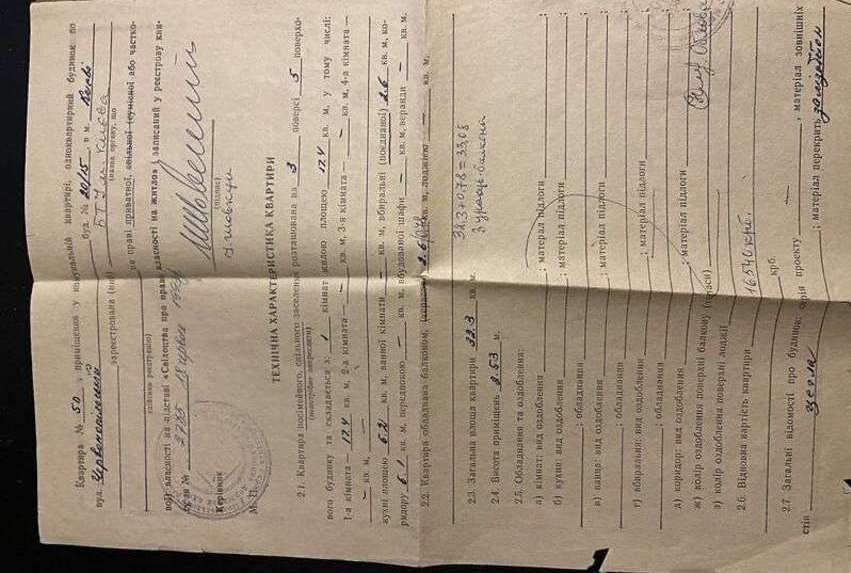 Квартира № 50, приміщення у комунальній квартирі, одноквартирний будинок по
вул. буд. № 20/15, в м. Києві
зареєстрована (ни) БТІ м. Києва
(назва органу, що
на праві приватної, спільної (сумісної або частко-
здійснює реєстрацію)
вої) власності на підставі «Свідоцтва про право власності на житло» і записаний у реєстрову кни-
за №
Керівник
(підпис)
М. П.
ТЕХНІЧНА ХАРАКТЕРИСТИКА КВАРТИРИ
2.1. Квартира посімейного, спільного заселення розташована на 3 поверсі 5 поверхо-
(непотрібне закреслити)
вого будинку та складається з: 1 кімнат жилою площею 17.4 кв. м, у тому числі:
1-а кімната — 17.4 кв. м, 2-а кімната — — кв. м, 3-я кімната — — кв. м, 4-а кімната —
— кв. м,
кухні площею 6.2 кв. м, ванної кімнати — кв. м, вбиральні (поєднаної) 2.6 кв. м, ко-
ридору 6.1 кв. м, передпокою — кв. м, вбудованої шафи — кв. м, веранди — кв. м.
2.2. Квартира обладнана балконом, 2.6 кв. м, лоджією — кв. м.
32.3+0.78=33,08
З урахув. балкона
2.3. Загальна площа квартири 32.3 кв. м.
2.4. Висота приміщень 2.53 м.
2.5. Обладнання та оздоблення:
а) кімнат: вид оздоблення ; матеріал підлоги
б) кухні: вид оздоблення ; матеріал підлоги
; обладнання
в) ванна: вид оздоблення ; матеріал підлоги
; обладнання
г) вбиральні: вид оздоблення ; матеріал підлоги
; обладнання
д) коридор: вид оздоблення ; матеріал підлоги
ж) колір оздоблення поверхні балкону
з) колір оздоблення поверхні лоджії
2.6. Відновна вартість квартири 16540 крб.
крб.
2.7. Загальні відомості про будинок: серія проекту — , матеріал зовнішніх
стін цегла ; матеріал перекрить